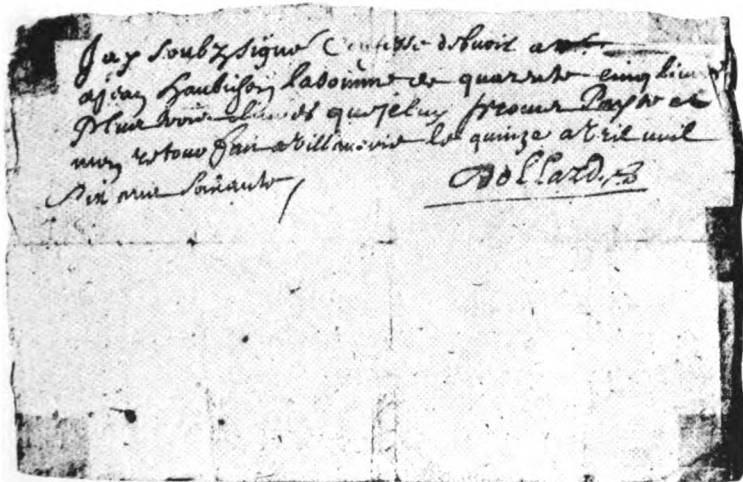 Jay soubz signé Confesse debvoir a
a jean haubichon la somme de quarente cinq livres
plus trois livres que je luy promes payer a
mon retour fait a villemarie le quinze avril mil
six cens soixante
Dollard